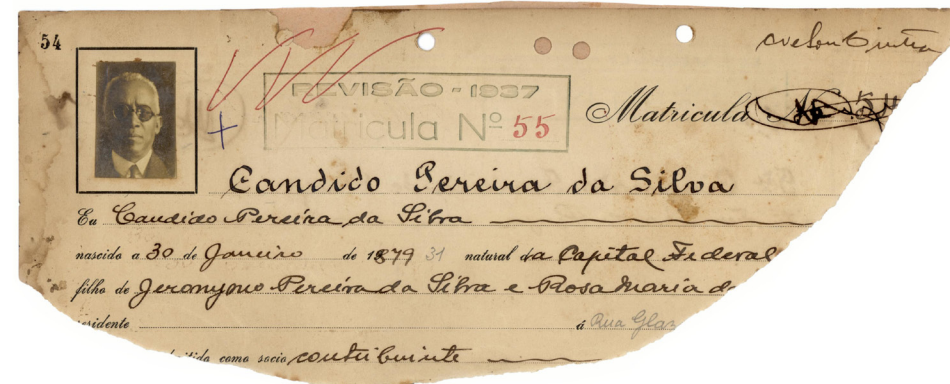 54
REVISÃO - 1937
Matricula Nº 55
Matricula
Candido Pereira da Silva
Eu Candido Pereira da Silva
nascido a 30 de Janeiro de 1879 31 natural da Capital Federal
filho de Jeronymo Pereira da Silva e Rosa Maria
residente á Rua
como socio contribuinte